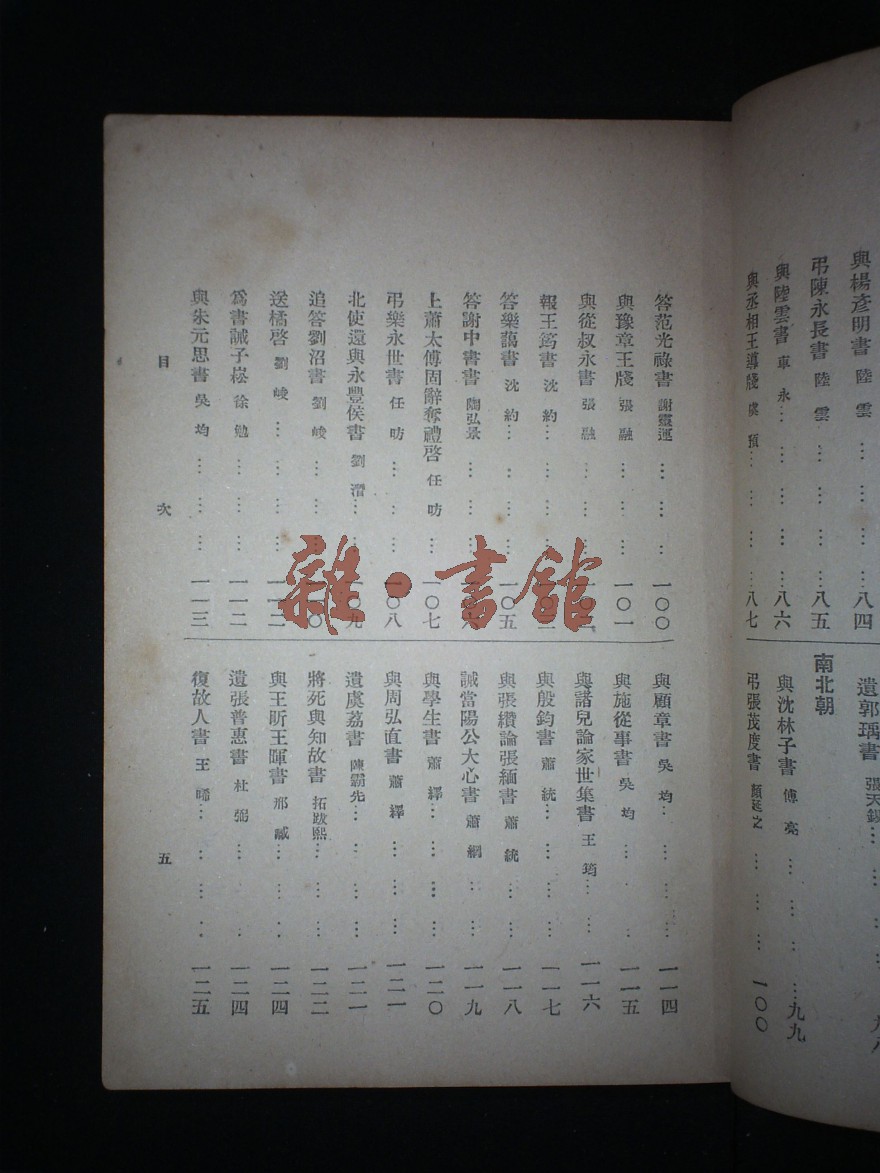 與楊彥明書 陸雲……八四
弔陳永長書 陸雲……八五
與陸雲書 車永……八六
與丞相王導牋 虞預……八七
遺郭瑀書 張天錫……九八
南北朝
與沈林子書 傅亮……九九
弔張茂度書 顏延之……一〇〇
答范光祿書 謝靈運……一〇〇
與豫章王牋 張融……一〇一
與從叔永書 張融……
報王筠書 沈約……
答樂藹書 沈約……一〇五
答謝中書書 陶弘景……
上蕭太傅固辭奪禮啓 任昉……一〇七
弔樂永世書 任昉……一〇八
北使還與永豐侯書 劉潛……一〇九
追答劉沼書 劉峻……
送橘啓 劉峻……一一二
爲書誡子崧 徐勉……一一二
與朱元思書 吳均……一一三
與顧章書 吳均……一一四
與施從事書 吳均……一一五
與諸兒論家世集書 王筠……一一六
與殷鈞書 蕭統……一一七
與張纘論張緬書 蕭統……一一八
誡當陽公大心書 蕭綱……一一九
與學生書 蕭繹……一二〇
與周弘直書 蕭繹……一二一
遺虞荔書 陳霸先……一二一
將死與知故書 拓跋熙……一二二
與王昕王暉書 邢臧……一二四
遺張普惠書 杜弼……一二四
復故人書 王晞……一二五
目次 五
雜·書館